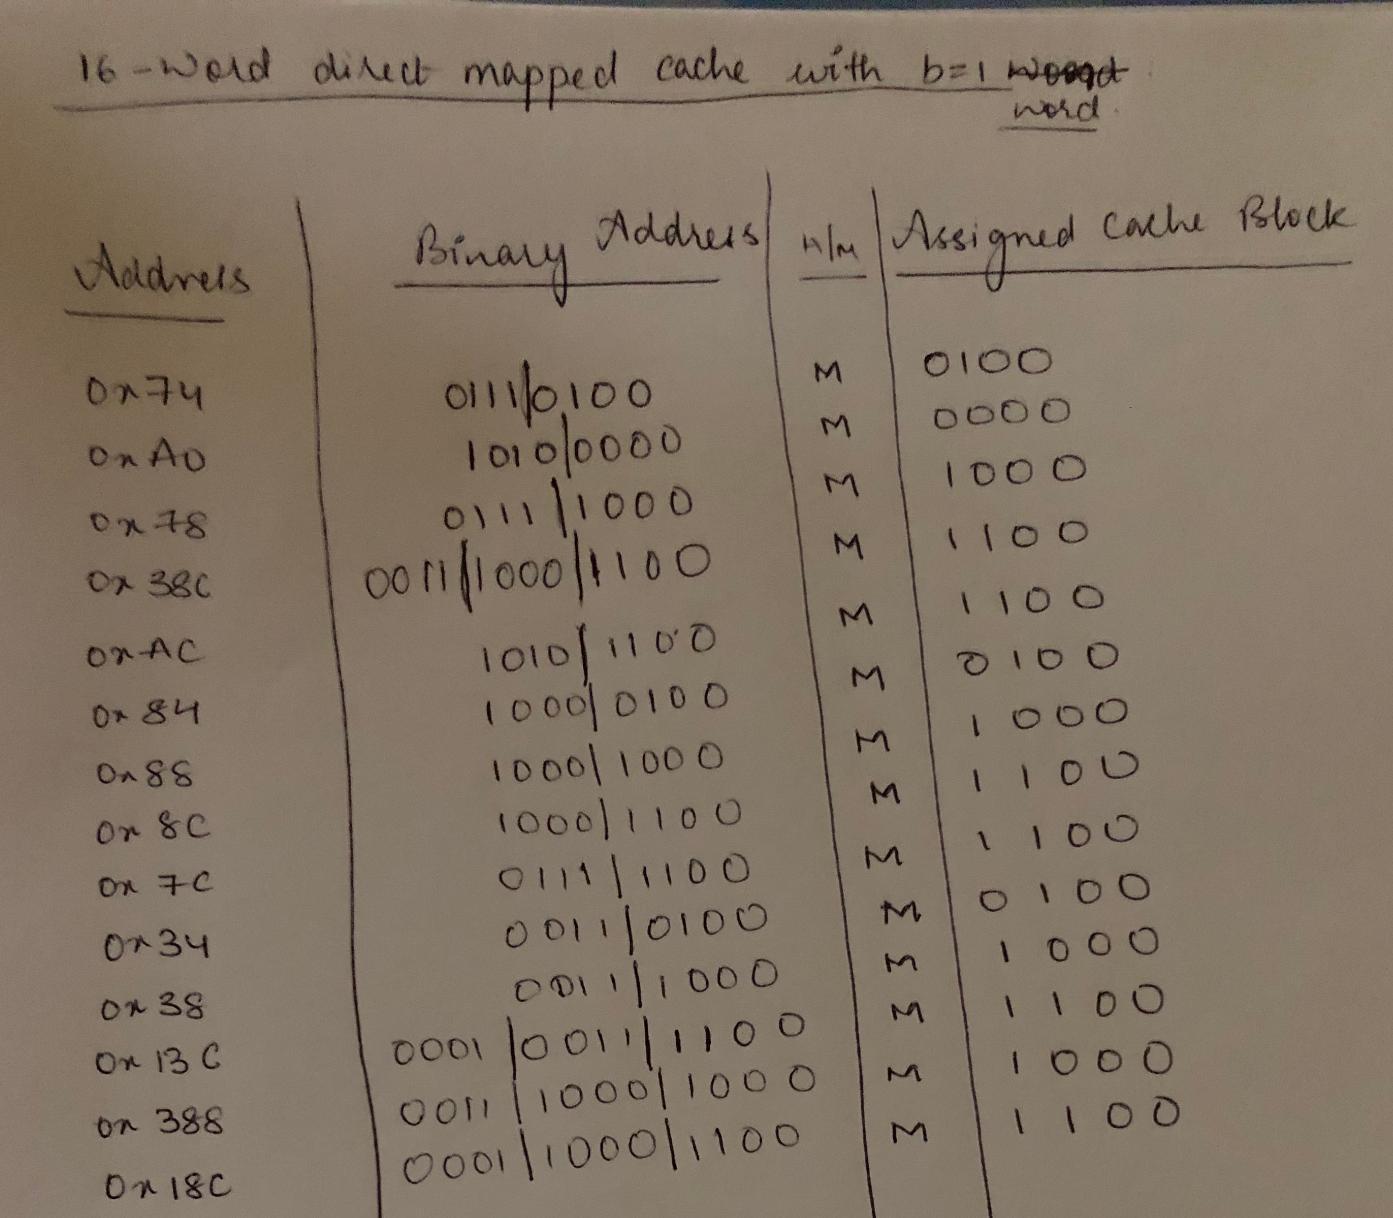 16-word direct mapped cache with b=1
word.
Address | Binary Address | H/M | Assigned Cache Block
0x74 | 0111/0100 | M | 0100
0xA0 | 1010/0000 | M | 0000
0x78 | 0111/1000 | M | 1000
0x38C | 0011/1000/1100 | M | 1100
0xAC | 1010/1100 | M | 1100
0x84 | 1000/0100 | M | 0100
0x88 | 1000/1000 | M | 1000
0x8C | 1000/1100 | M | 1100
0x7C | 0111/1100 | M | 1100
0x34 | 0011/0100 | M | 0100
0x38 | 0011/1000 | M | 1000
0x13C | 0001/0011/1100 | M | 1100
0x388 | 0011/1000/1000 | M | 1000
0x18C | 0001/1000/1100 | M | 1100